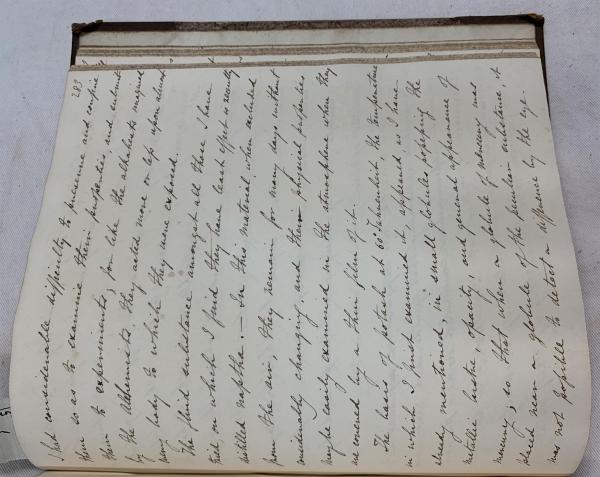 283
I had considerable difficulty to preserve and confine
them so as to examine their properties, and submit
them to experiments; for like the alkahests imagined
by the Alchemists, they acted more or less upon almost
every body to which they were exposed.
The fluid substance amongst all those I have
tried, on which I find they have least effect is recently
distilled naptha. — In this material, when excluded
from the air, they remain for many days without
considerably changing, and their physical properties
may be easily examined in the atmosphere when they
are covered by a thin film of it.
The basis of potash at 60° Fahrenheit, the temperature
in which I first examined it appeared, as I have
already mentioned, in small globules possessing the
metallic lustre, opacity, and general appearance of
mercury; so that when a globule of mercury was
placed near a globule of the peculiar substance, it
was not possible to detect a difference by the eye.